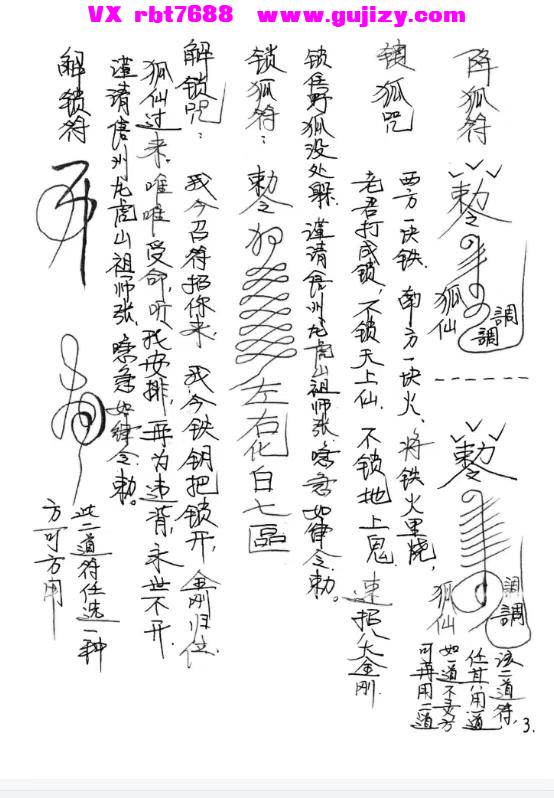 VX rbt7688 www.gujizy.com
降狐符
勅令
狐仙
調
調
勅令
狐仙
調
調
该二道符，
任其用一道
如一道不灵方
可再用二道
3.
锁狐咒
西方一块铁，南方一块火，将铁火里烧，
老君打成锁，不锁天上仙，不锁地上鬼，速招八大金刚
锁住野狐没处躲，谨请信州龙虎山祖师张，唵急如律令勅。
锁狐符：勅令 左右化白七區
解锁咒：我今召符招你来，我今铁钥把锁开，金刚归位
狐仙过来，唯唯受命，听我安排，再为违背，永世不开，
谨请信州龙虎山祖师张，唵急如律令勅。
解锁符
此二道符任选一种
方可方用